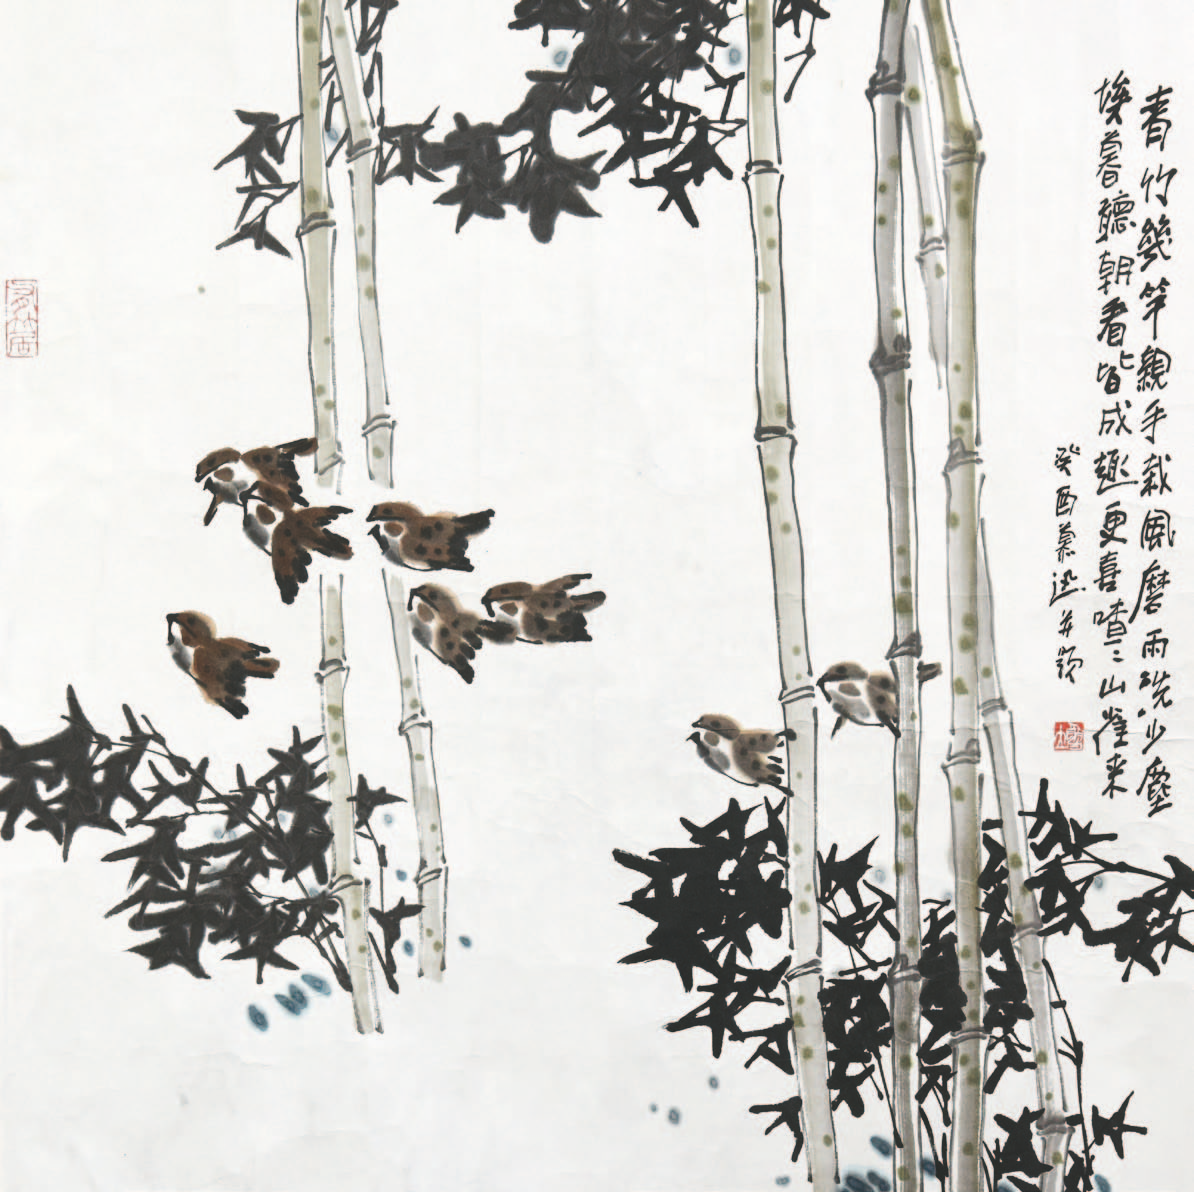 青竹幾竿親手栽風磨雨洗少塵
埃暮聽朝看皆成趣更喜喳〻山雀来
癸酉慕迅并题